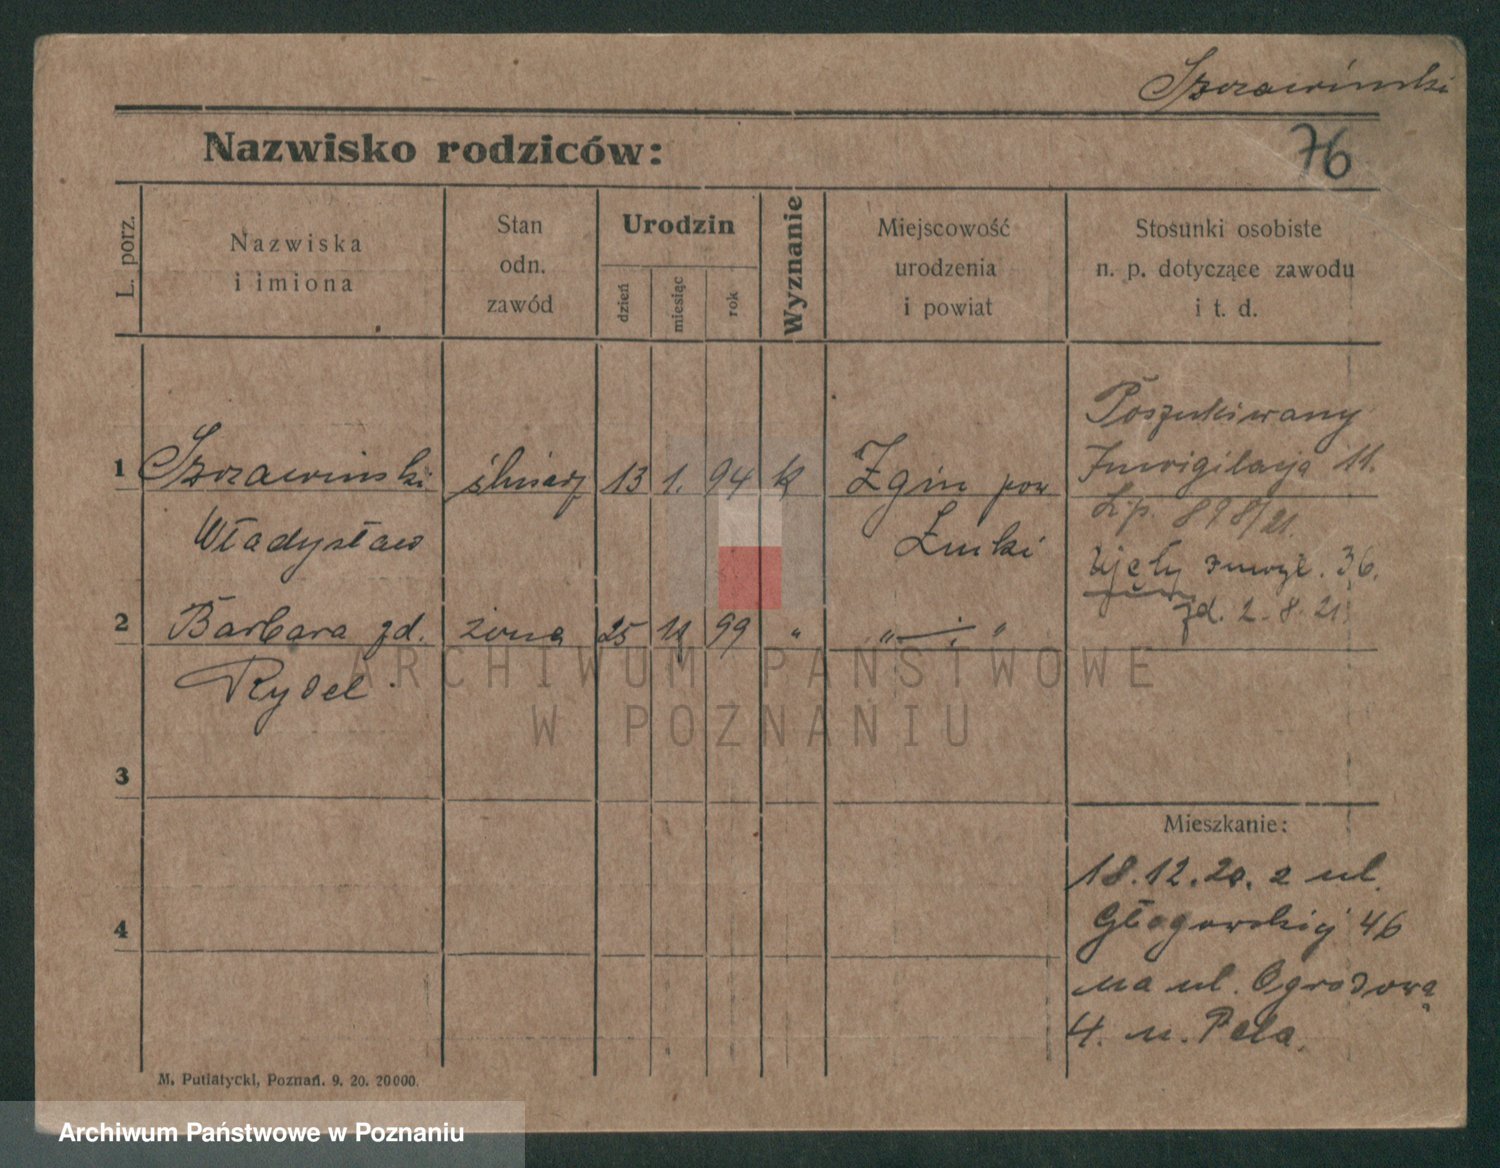 Szczawiński
76
Nazwisko rodziców:
L. porz.
Nazwiska
i imiona
Stan
odn.
zawód
Urodzin
dzień
miesiąc
rok
Wyznanie
Miejscowość
urodzenia
i powiat
Stosunki osobiste
n. p. dotyczące zawodu
i t. d.
1 Szczawiński 13 1. 94 k
Władysław
2 Barbara zd. żona 25 99 "
Rydel.
3
4
Poszukiwany
Inwigilacja 11.
L.p. 898/21.
36.
zd. 2.8.21
Mieszkanie:
18.12.20. z ul.
Głogowskiej 46
na ul. Ogrodową
4. u. Pela.
M. Putiatycki, Poznań. 9. 20. 20000.
ARCHIWUM PAŃSTWOWE
W POZNANIU
Archiwum Państwowe w Poznaniu